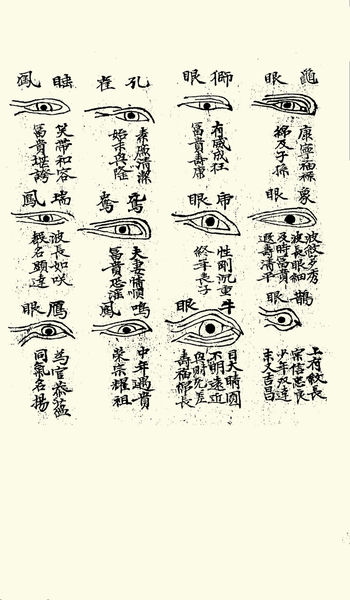 龜眼
康寧福祿
綿及子孫
獅眼
有威成狂
富貴壽康
孔雀
素廉清潔
始末興隆
睡鳳
笑帶和容
富貴堪誇
象眼
波紋多秀
波長眼細
及時富貴
遐壽清平
虎眼
性剛沉重
終年喪子
鴛鴦
夫妻情順
富貴恐淫
瑞鳳
波長如咲
名顯達
鵲眼
上有紋長
常信忠良
少年双達
末又吉昌
牛眼
目大睛圓
不明遠近
與財差
壽福綿長
鳴鳳
中年遇貴
榮宗耀祖
鴈眼
為官恭蘊
同氣名揚